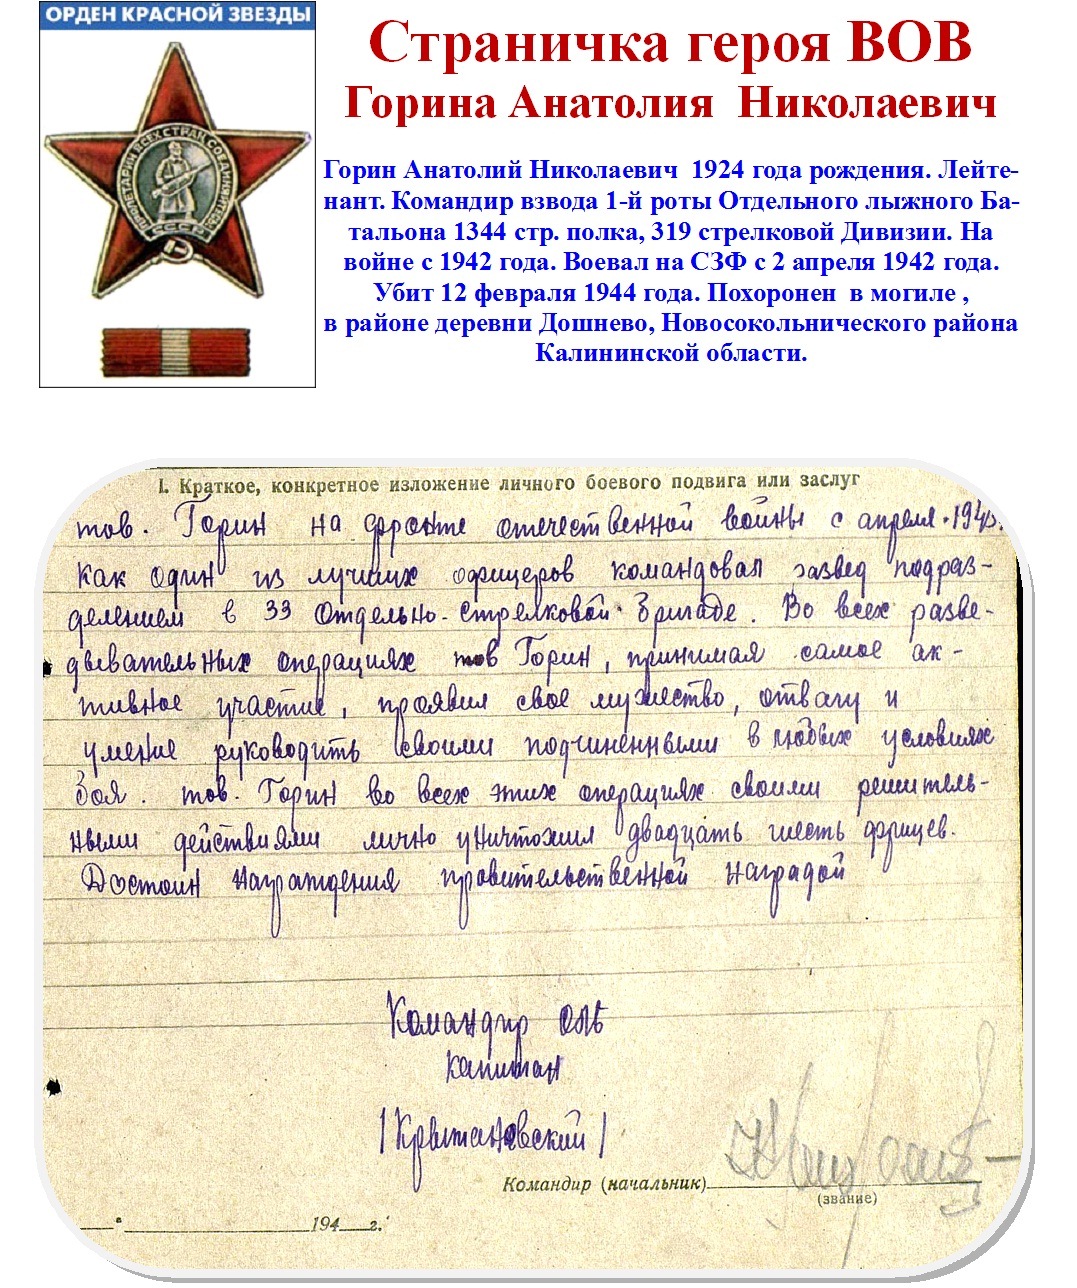 ОРДЕН КРАСНОЙ ЗВЕЗДЫ
ПРОЛЕТАРИИ ВСЕХ СТРАН СОЕДИНЯЙТЕСЬ
СССР
Страничка героя ВОВ
Горина Анатолия Николаевич
Горин Анатолий Николаевич 1924 года рождения. Лейте-
нант. Командир взвода 1-й роты Отдельного лыжного Ба-
тальона 1344 стр. полка, 319 стрелковой Дивизии. На
войне с 1942 года. Воевал на СЗФ с 2 апреля 1942 года.
Убит 12 февраля 1944 года. Похоронен в могиле ,
в районе деревни Дошнево, Новосокольнического района
Калининской области.
I. Краткое, конкретное изложение личного боевого подвига или заслуг
тов. Горин на фронте отечественной войны с апреля
Как один из лучших офицеров командовал развед подраз-
делением в 33 Отдельно-стрелковой бригаде. Во всех разве-
дывательных операциях тов Горин, принимая самое ак-
тивное участие, проявил свое мужество, отвагу и
умение руководить своими подчиненными в любых условиях
боя. тов. Горин во всех этих операциях своими решитель-
ными действиями лично уничтожил двадцать шесть фрицев.
Достоин награждения правительственной наградой
Командир ОЛБ
капитан
Командир (начальник)
(звание)
194 г.